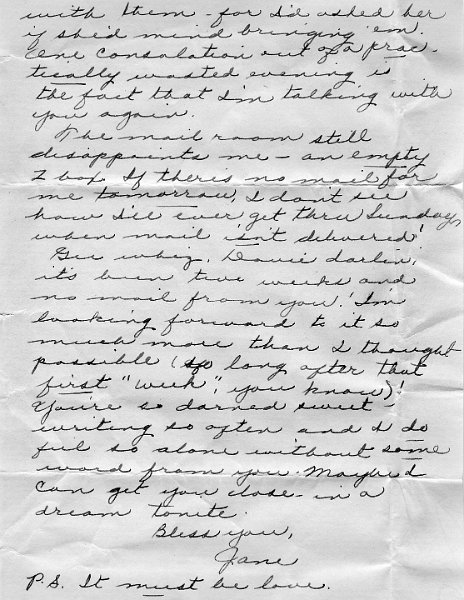 with them - for I'd asked her
if she'd mind bringing 'em.
One consolation out of a prac-
tically wasted evening is
the fact that I'm talking with
you again.
The mail room still
disappoints me - an empty
Z box. If there's no mail for
me tomorrow, I don't see
how I'll ever get thru Sunday,
when mail isn't delivered!
Gee whiz, Davie darlin',
it's been two weeks and
no mail from you! I'm
looking forward to it so
much more than I thought
possible (so long after that
first "week", you know)!
You're so darned sweet
writing so often and I do
feel so alone without some
word from you. Maybe I
can get you close - in a
dream tonite.
Bless you,
Jane
P.S. It must be love.